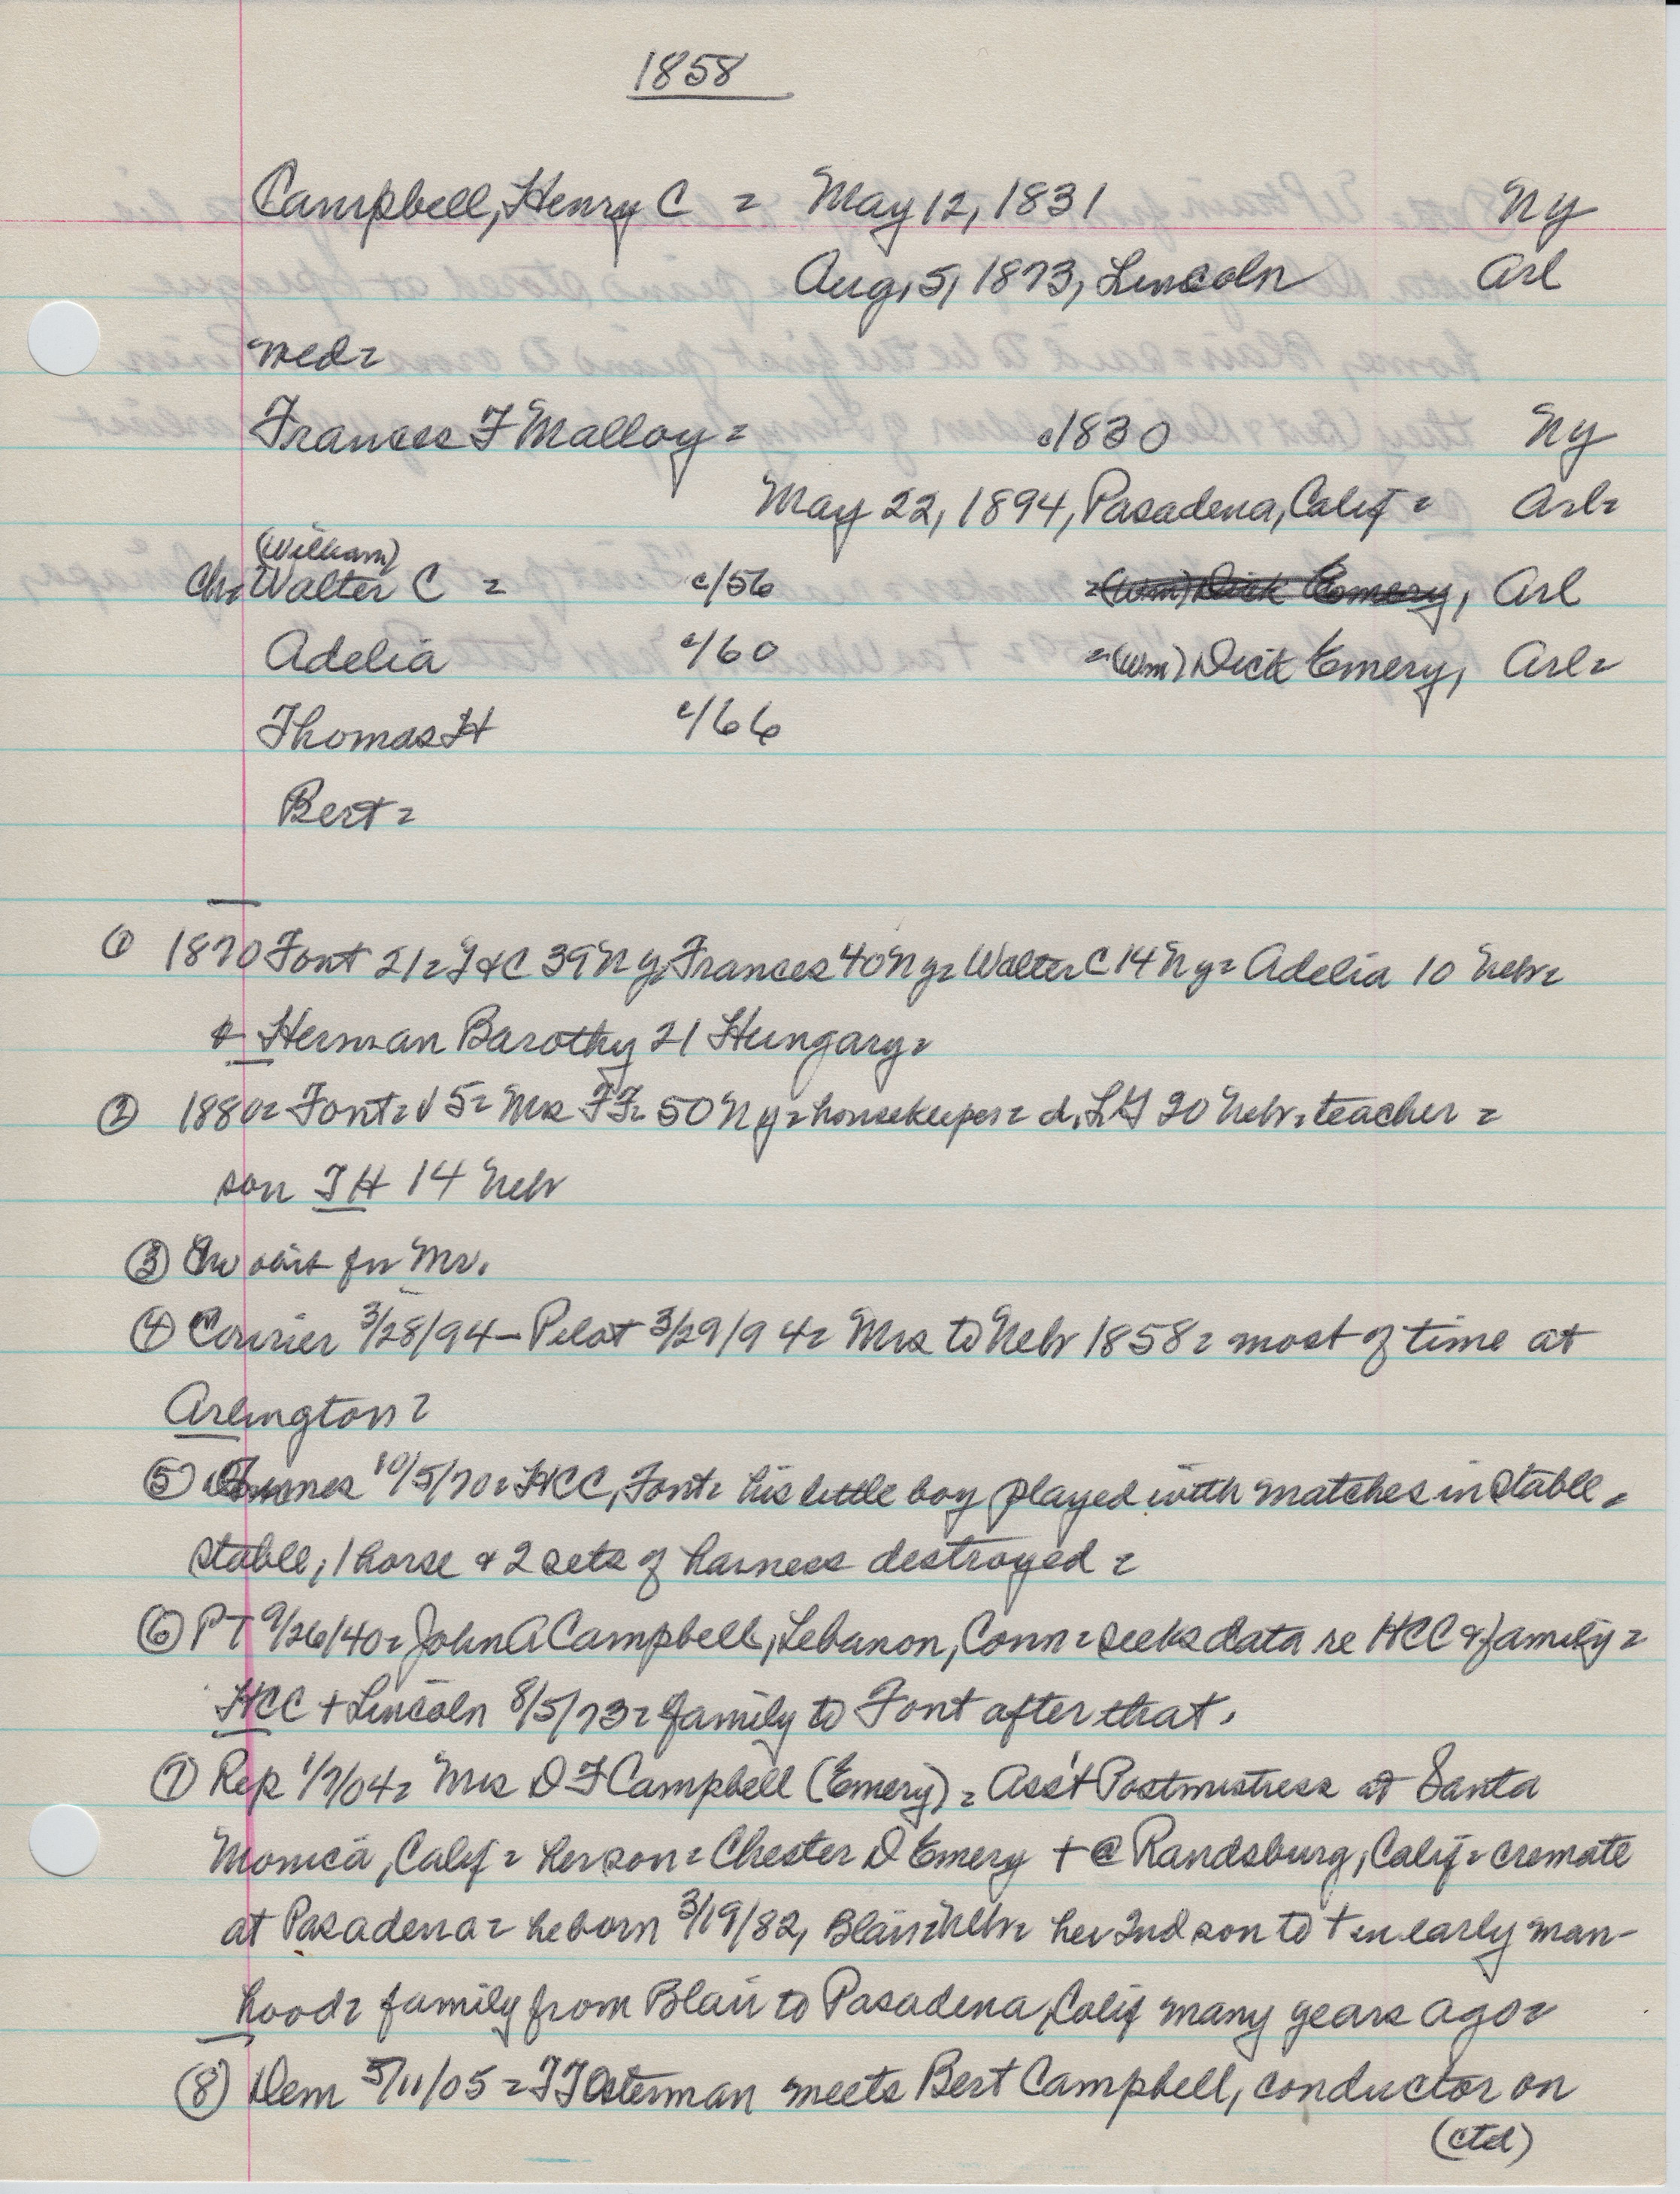 1858
Campbell, Henry C = May 12, 1831 Ny
Aug, 5, 1873, Lincoln Arl
med=
Frances F Malloy = c1830 Ny
May 22, 1894, Pasadena, Calif = Arl=
(William)
Ch= Walter C = c/56 =(Wm) Dick Emery, Arl
Adelia c/60 =(Wm) Dick Emery, Arl=
Thomas H c/66
Bert =
① 1870 Font 21= H C 39 Ny, Frances 40 Ny= Walter C 14 Ny= Adelia 10 Nebr=
& Herman Barothy 21 Hungary=
② 1880= Font= 5= Mrs FF= 50 Ny= housekeeper= d, 20 Nebr= teacher =
son TH 14 Nebr
③ for Mr.
④ Courier 3/28/94 - Pilot 3/29/94= Mrs to Nebr 1858= most of time at
Arlington=
⑤ 10/5/70= HCC, Font= his little boy played with matches in stable,
stable, 1 horse & 2 sets of harness destroyed =
⑥ PT 9/26/40= John A Campbell, Lebanon, Conn= seeks data re HCC & family=
HCC + Lincoln 8/5/73= family to Font after that.
⑦ Rep 1/7/04= Mrs D F Campbell (Emery) = Ass't Postmistress at Santa
Monica, Calif = her son= Chester D Emery + @ Randsburg, Calif= cremate
at Pasadena= he born 3/19/82, Blair= Nebr= her 2nd son to + in early man-
hood= family from Blair to Pasadena, Calif many years ago=
⑧ Dem 5/11/05 = F J Osterman meets Bert Campbell, conductor on
(ctd)